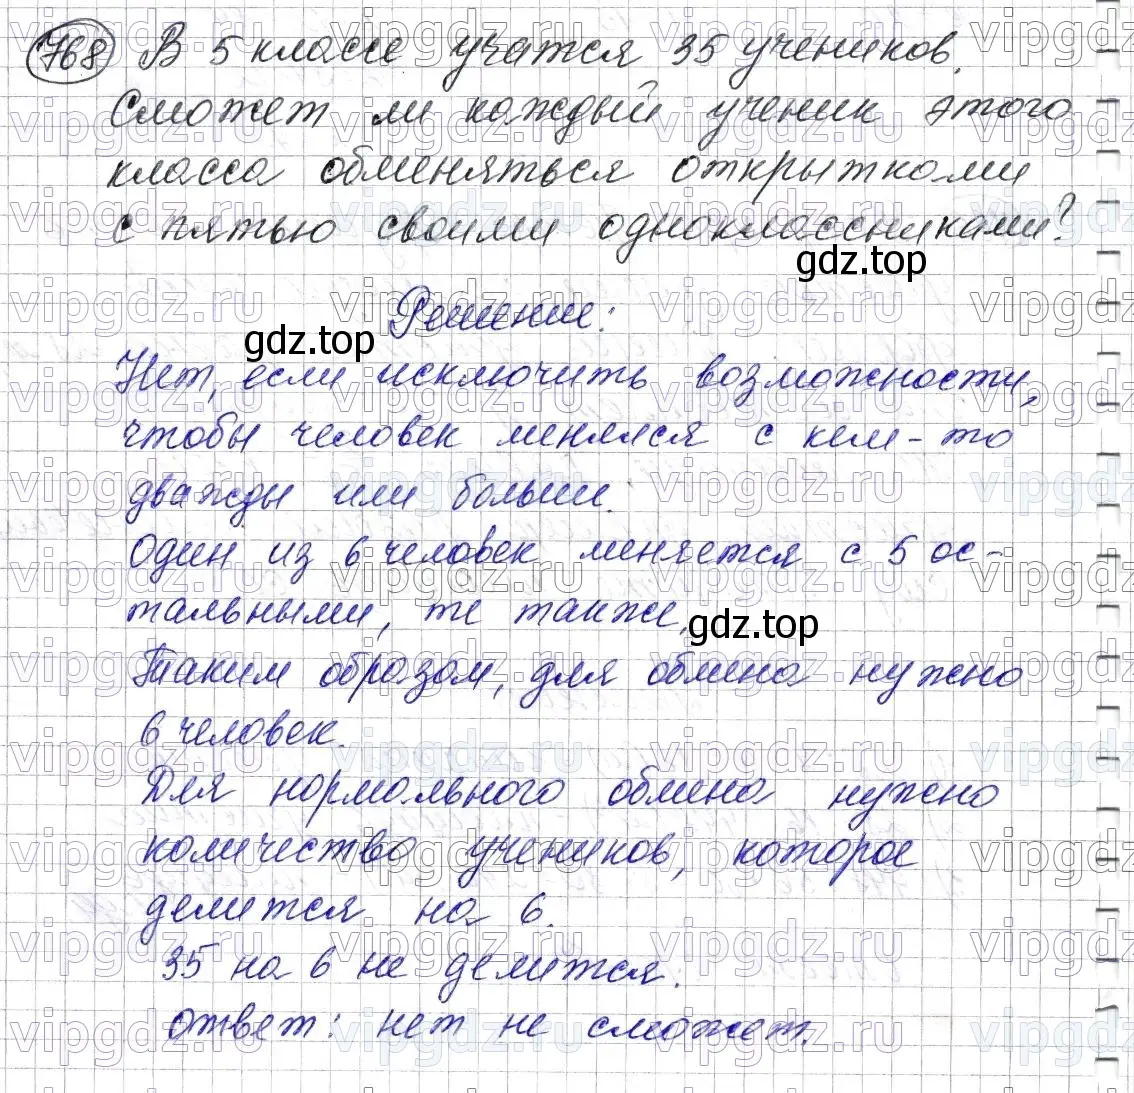 768 В 5 классе учатся 35 учеников.
Сможет ли каждый ученик этого
класса обменяться открытками
с пятью своими одноклассниками?
gdz.top
Решение:
gdz.top
Нет, если исключить возможности,
чтобы человек менялся с кем-то
дважды или больше.
Один из 6 человек меняется с 5 ос-
тальными, те также.
gdz.top
Таким образом, для обмена нужно
6 человек.
Для нормального обмена нужно
количество учеников, которое
делится на 6.
35 на 6 не делится.
ответ: нет не сможет.
vipgdz.ru